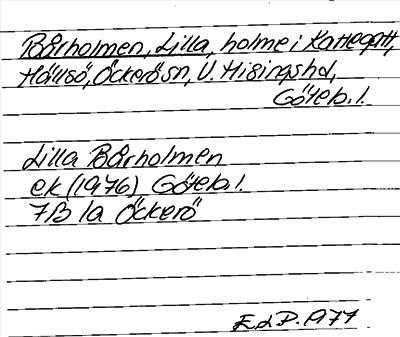 Bårholmen, Lilla, holme i Kattegatt,
Hälsö, Öckerö sn, V. Hisings hd,
Göteb. l.
Lilla Bårholmen
ek (1976) Göteb l.
7B 1a Öckerö
E.d P. 1977